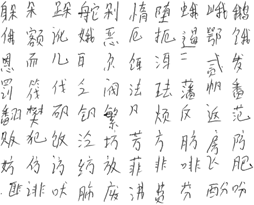 躲 朵 跺 舵 剁 惰 堕 蛾 峨 鹅
俄 额 讹 娥 恶 厄 扼 遏 鄂 饿
恩 而 儿 耳 尔 饵 洱 二 贰 发
罚 筏 伐 乏 阀 法 珐 藩 帆 番
翻 樊 矾 钒 繁 凡 烦 反 返 范
贩 犯 饭 泛 坊 芳 方 肪 房 防
妨 仿 访 纺 放 菲 非 啡 飞 肥
匪 诽 吠 肺 废 沸 费 芬 酚 吩